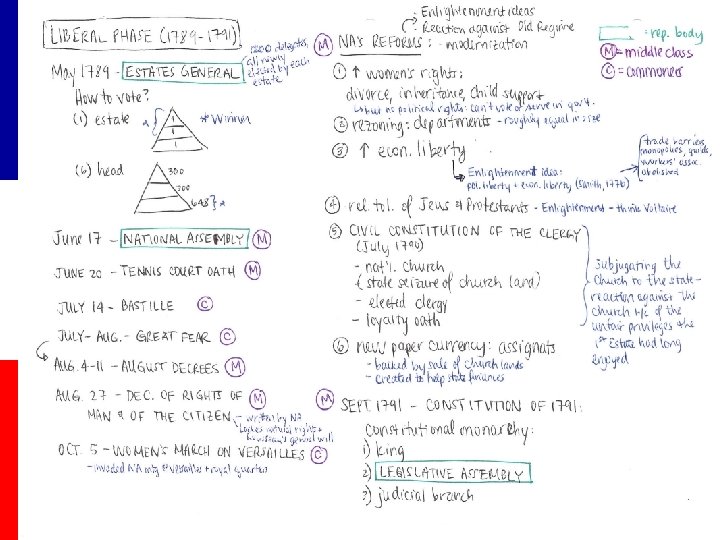 LIBERAL PHASE (1789-1791)
May 1789 - ESTATES GENERAL
1200 delegates, all newly elected by each estate
How to vote?
(1) estate
1
1
1
* Winner
(2) head
300
300
648
June 17 - NATIONAL ASSEMBLY (M)
JUNE 20 - TENNIS COURT OATH (M)
JULY 14 - BASTILLE (C)
JULY - AUG. - GREAT FEAR (C)
AUG. 4-11 - AUGUST DECREES (M)
AUG. 27 - DEC. OF RIGHTS OF
MAN & OF THE CITIZEN (M)
- written by NA
Lockes natural rights +
Rousseau's general will
OCT. 5 - WOMEN'S MARCH ON VERSAILLES (C)
- invaded NA mtg @ Versailles + royal quarters
(M) NA'S REFORMS:
- Enlightenment ideas
- Reaction against Old Regime
- modernization
① ↑ women's rights:
divorce, inheritance, child support
↳ but no political rights: can't vote or serve in gov't.
② rezoning: departments - roughly equal in size
③ ↑ econ. liberty
Enlightenment idea:
pol. liberty + econ. liberty (Smith, 1776)
trade barriers,
monopolies, guilds,
workers' assoc.
abolished
④ rel. tol. of Jews & Protestants - Enlightenment - think Voltaire
⑤ CIVIL CONSTITUTION OF THE CLERGY
(July 1790)
- nat'l. church
(state seizure of church land)
- elected clergy
- loyalty oath
Subjugating the
Church to the state -
reaction against the
Church b/c of the
unfair privileges the
1st Estate had long
enjoyed
⑥ new paper currency: assignats
- backed by sale of church lands
- created to help state finances
(M) SEPT. 1791 - CONSTITUTION OF 1791:
Constitutional monarchy:
1) king
2) LEGISLATIVE ASSEMBLY
3) judicial branch
: rep. body
(M) = middle class
(C) = commoners